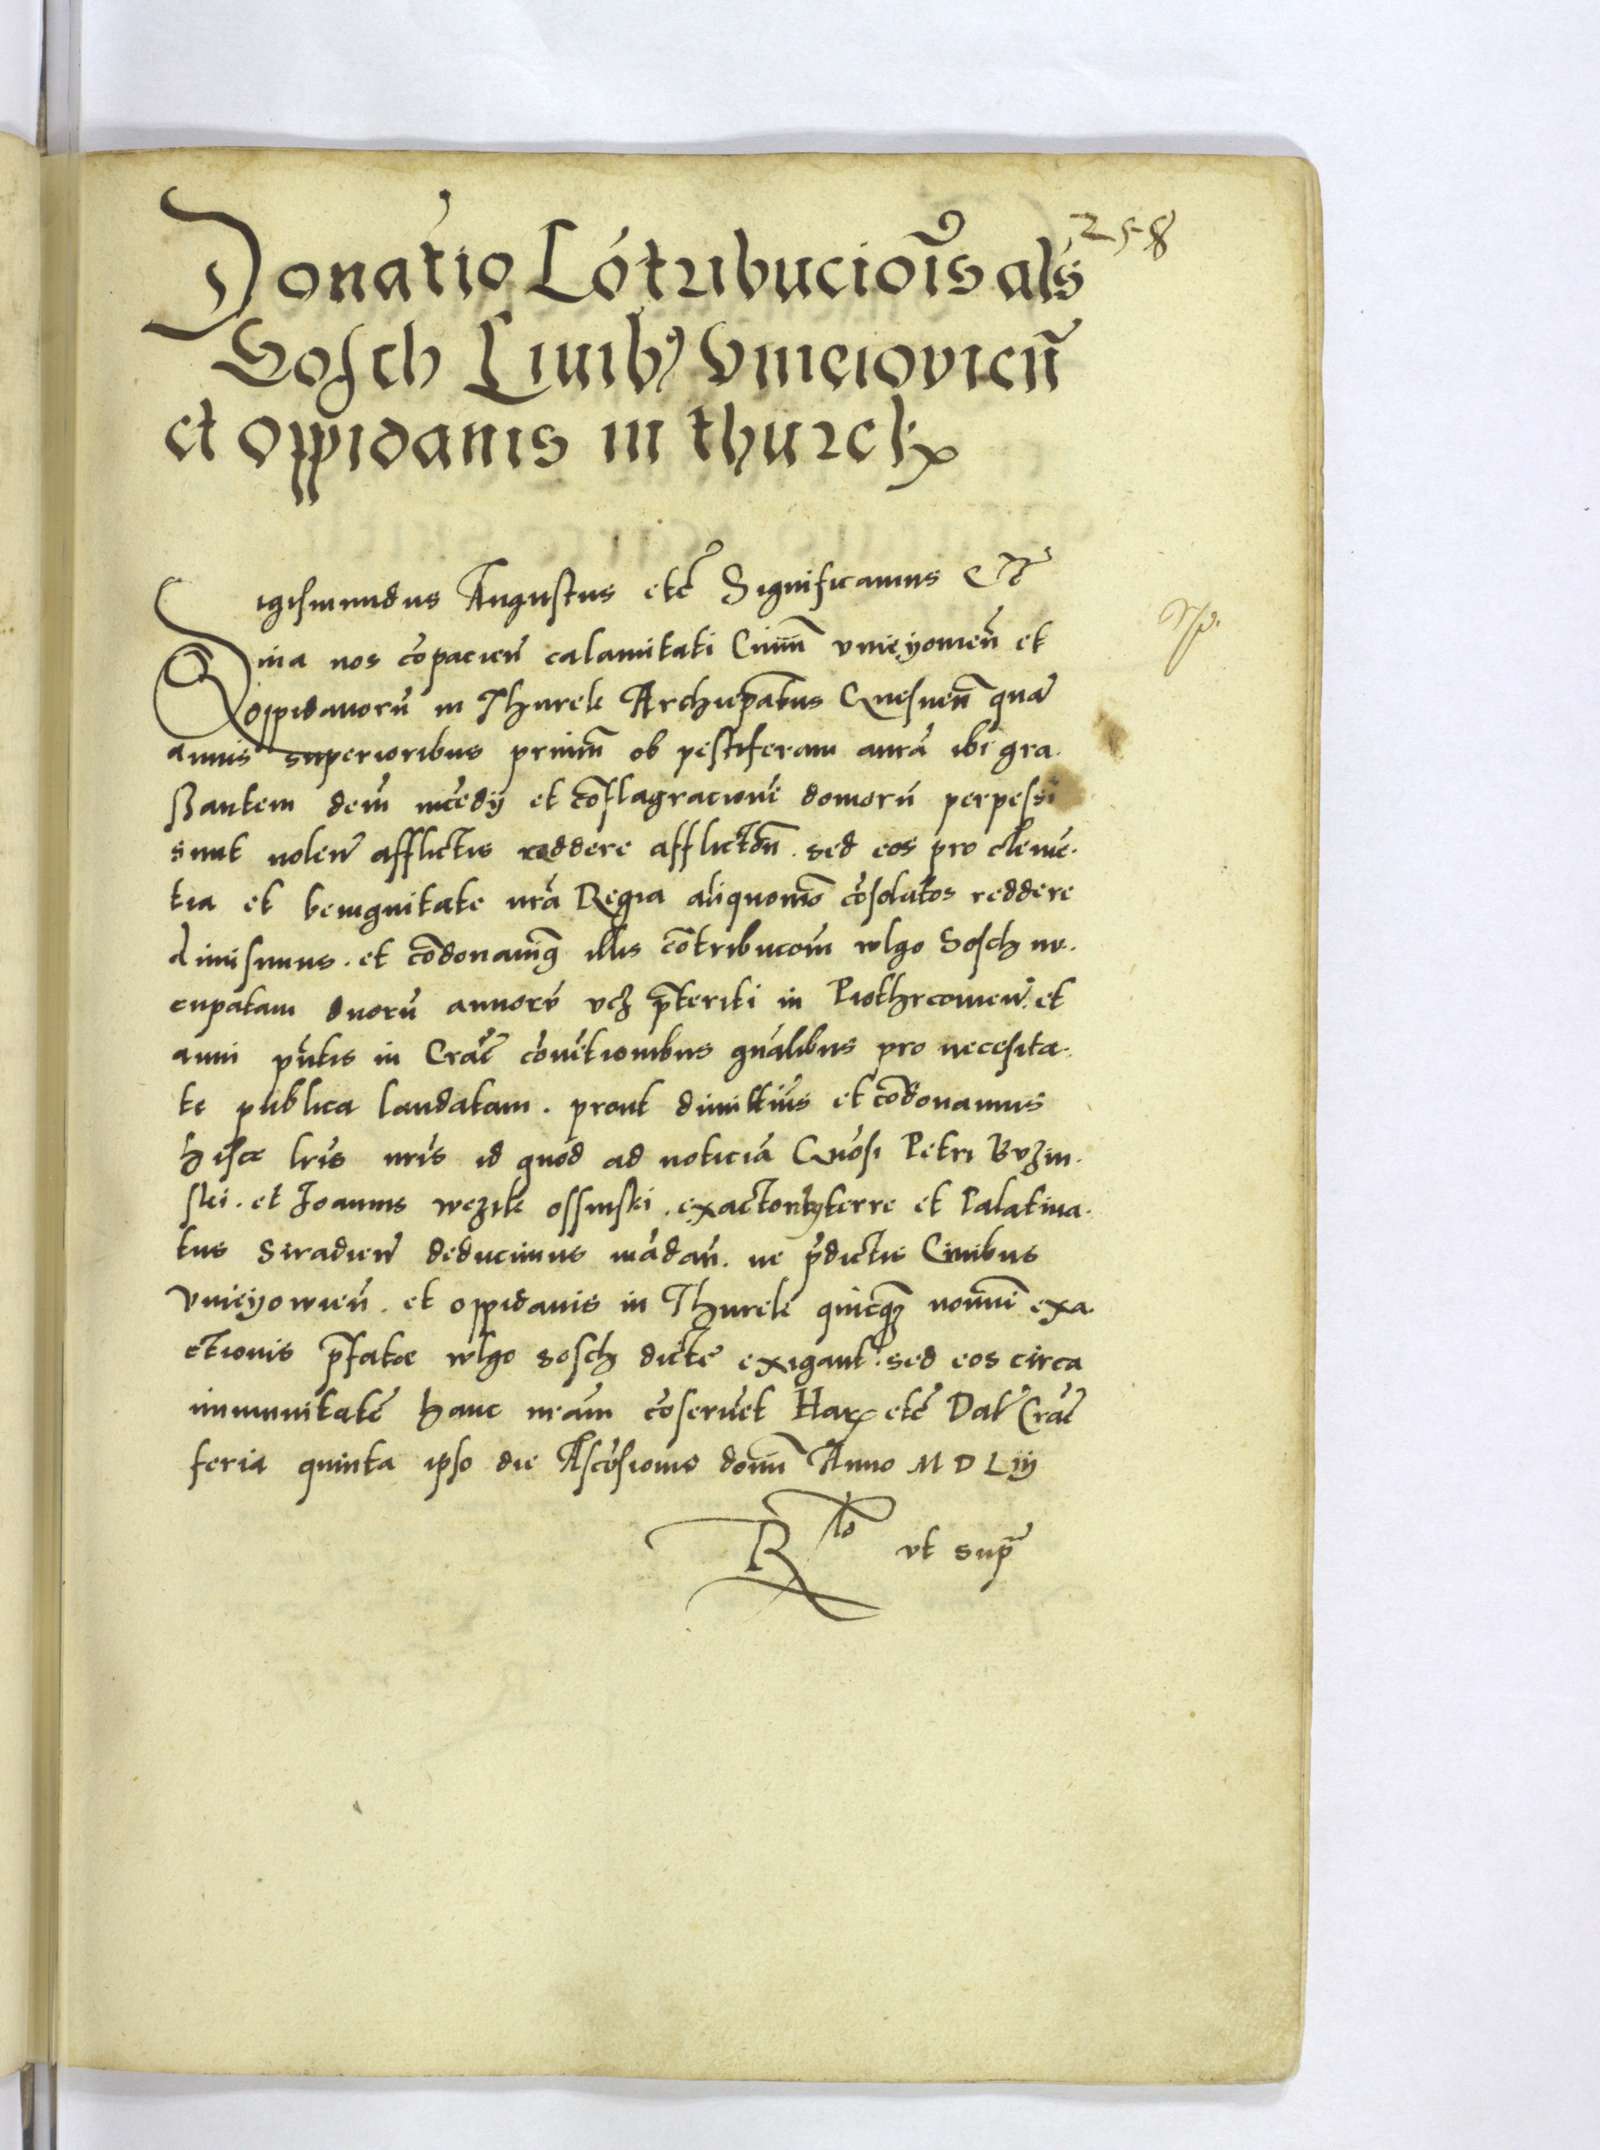 258
Donatio Cōtribucioīs als
Sosch Ciuibꝰ Vnieiovień
et oppidanis in thurek
Sigismundus Augustus etc̄ Significamus etc̄
Quia nos cōpacień calamitati Ciuiū vnieyouień et
oppidanorū in Thurek Archiep̄atus Gnesneń quā
annis superioribus primū ob pestiferam aurā ibi gra.
ssantem dein̄ incēdij et cōflagracionē domorū perpessi
sunt nolen̄ afflictis reddere afflictōn̄. sed eos pro clemē.
tia et benignitate nr̄a Regia aliquom̄o cōsolatos reddere
dimisimus. et cōdonauimꝰ illis cōtribucōm̄ wlgo Sosch nū.
cupatam duorū annorū vcz p̄teriti in Piothrcouień. et
anni p̄ntis in Crac̄ cōuētionibus gn̄alibus pro necesita.
te publica laudatam. prout dimittimꝰ et cōdonamus
hisce lr̄is nr̄is id quod ad noticiā Gn̄osi Petri Buzin.
ski. et Joannis wezik ossinski. exactorū terre et Palatina.
tus Siradień deducimus mādan̄. ne p̄dictis Ciuibus
vnieyowień. et oppidanis in Thurek quicq̄ nomīe exa
ctionis p̄fatae wlgo sosch dicte exigant. sed eos circa
immunitatē hanc nr̄am cōseruēt Harꝝ etc̄ Dat̄ Crac̄
feria quinta ipso die Ascēsionis domī Anno MDLiij
Rlō vt supr̄